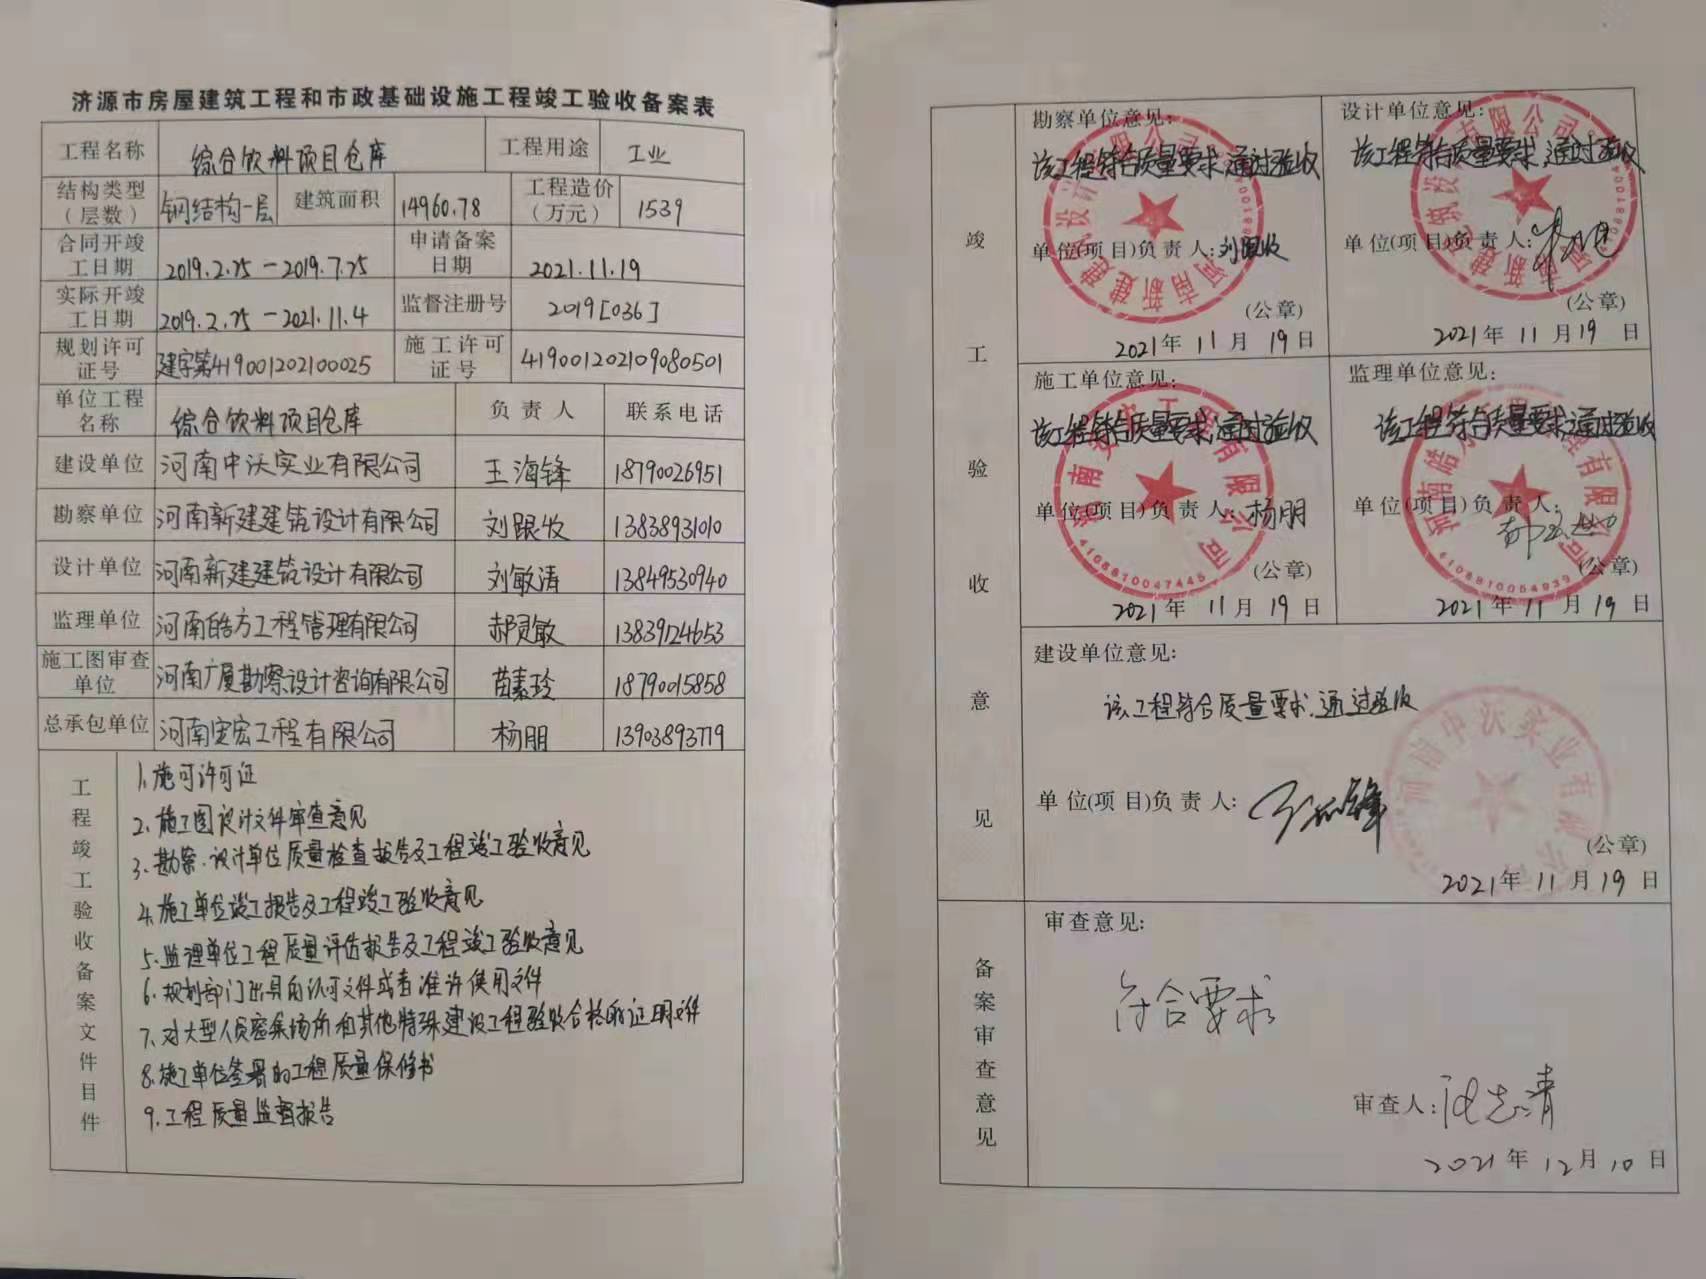 济源市房屋建筑工程和市政基础设施工程竣工验收备案表
工程名称 综合饮料项目仓库 工程用途 工业
结构类型（层数） 钢结构一层 建筑面积 14960.78 工程造价（万元） 1539
合同开竣工日期 2019.2.25-2019.7.25 申请备案日期 2021.11.19
实际开竣工日期 2019.2.25-2021.11.4 监督注册号 2019[036]
规划许可证号 建字第419001202100025 施工许可证号 419001202109080501
单位工程名称 综合饮料项目仓库 负责人 联系电话
建设单位 河南中沃实业有限公司 王海锋 18790026951
勘察单位 河南新建建筑设计有限公司 刘跟收 13838931010
设计单位 河南新建建筑设计有限公司 刘敏涛 13849530940
监理单位 河南皓方工程管理有限公司 郝灵敏 13839124653
施工图审查单位 河南广厦勘察设计咨询有限公司 苗素玲 18790015858
总承包单位 河南安宏工程有限公司 杨朋 13903893719
工程竣工验收备案文件目件
1.施可许可证
2.施工图设计文件审查意见
3.勘察.设计单位质量检查报告及工程竣工验收意见
4.施工单位竣工报告及工程竣工验收意见
5.监理单位工程质量评估报告及工程竣工验收意见
6.规划部门出具的认可文件或者准许使用文件
7.对大型人员密集场所和其他特殊建设工程验收合格的证明文件
8.施工单位签署的工程质量保修书
9.工程质量监督报告
竣工验收意见
勘察单位意见:
该工程符合质量要求,通过验收
单位(项目)负责人:刘跟收
(公章)
2021年11月19日
设计单位意见:
该工程符合质量要求,通过验收
单位(项目)负责人:
(公章)
2021年11月19日
施工单位意见:
该工程符合质量要求,通过验收
单位(项目)负责人:杨朋
(公章)
4108810047445
2021年11月19日
监理单位意见:
该工程符合质量要求,通过验收
单位(项目)负责人:
(公章)
4108810054939
2021年11月19日
建设单位意见:
该工程符合质量要求.通过验收
单位(项目)负责人:王海锋
河南中沃实业有限公司
(公章)
2021年11月19日
备案审查意见
审查意见:
符合要求
审查人:
2021年12月10日